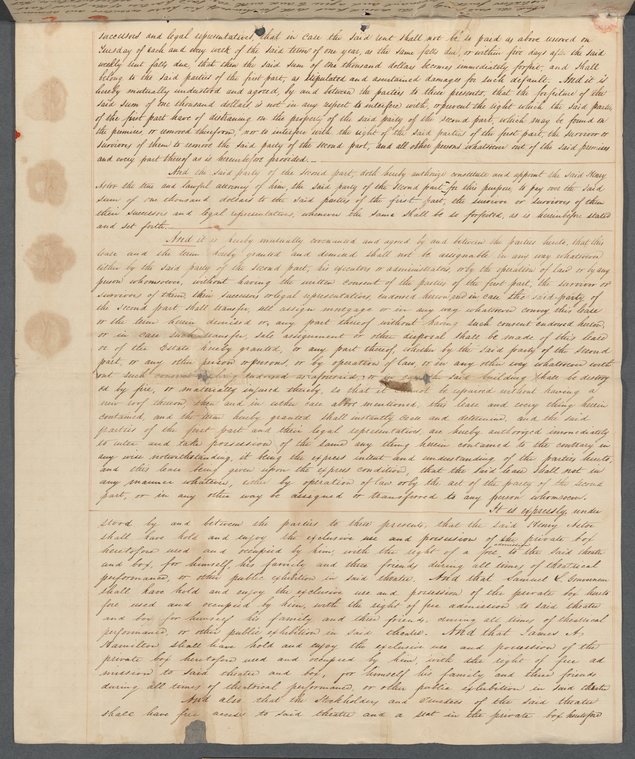 successors and legal representatives, that in case the said rent shall not be so paid as above reserved on
Tuesday of each and every week of the said term of one year, as the same falls due, or within five days after the said
weekly rent falls due, that then the said sum of one thousand dollars becomes immediately forfeit, and shall
belong to the said parties of the first part, as stipulated and ascertained damages for such default. And it is
hereby mutually understood and agreed, by and between the parties to these presents, that the forfeiture of the
said sum of one thousand dollars is not in any respect to interfere with, or prevent the right which the said parties
of the first part have of distraining on the property of the said party of the second part, which may be found on
the premises or removed therefrom, nor to interfere with the right of the said parties of the first part, the survivor or
survivors of them to remove the said party of the second part, and all other persons whatsoever out of the said premises
and every part thereof as is hereinbefore provided.
And the said party of the second part, doth hereby authorize constitute and appoint the said Henry
Astor the true and lawful attorney of him, the said party of the second part for this purpose, to pay over the said
sum of one thousand dollars to the said parties of the first part, the survivor or survivors of them
their successors and legal representatives, whenever the same shall be so forfeited, as is hereinbefore stated
and set forth.
And it is hereby mutually covenanted and agreed by and between the parties hereto, that this
lease and the term hereby granted and demised shall not be assignable in any way whatsoever
either by the said party of the second part, his executors or administrators, or by the operation of law or by any
person whomsoever, without having the written consent of the parties of the first part, the survivor or
survivors of them, their successors or legal representatives, endorsed hereon, and in case the said party of
the second part shall transfer, sell assign mortgage or in any way whatsoever convey this lease
or the term herein demised or, any part thereof without having such consent endorsed hereon,
or in case such transfer, sale assignment or other disposal shall be made of this lease
or of the Estate hereby granted, or any part thereof, whether by the said party of the second
part, or any other person or persons or by operation of law, or in any other way whatsoever with
out such consent being endorsed as aforesaid, or in case the said building shall be destroy
ed by fire, or materially injured thereby, so that it cannot be repaired without having a
new roof thereon then and in either case above mentioned, this lease and every thing herein
contained, and the term hereby granted shall instantly cease and determine, and the said
parties of the first part and their legal representatives, are hereby authorized immediately
to enter and take possession of the same any thing herein contained to the contrary in
any wise notwithstanding, it being the express intent and understanding of the parties hereto,
and this lease being given upon the express condition, that the said lease shall not in
any manner whatever, either by operation of law or by the act of the party of the second
part, or in any other way be assigned or transferred to any person whomsoever.
It is expressly under
stood by and between the parties to these presents, that the said Henry Astor
shall have hold and enjoy the exclusive use and possession of the private box
heretofore used and occupied by him, with the right of a free admission to the said theatre
and box, for himself, his family and three friends during all times of theatrical
performance, or other public exhibition in said theatre. And that Samuel L. Gouverneur
shall have hold and enjoy the exclusive use and possession of the private box hereto
fore used and occupied by him, with the right of free admission to said theatre
and box for himself his family and three friends, during all times of theatrical
performance, or other public exhibition in said theatre. And that James A.
Hamilton shall have hold and enjoy the exclusive use and possession of the
private box heretofore used and occupied by him, with the right of free ad
mission to said theatre and box, for himself his family and three friends
during all times of theatrical performance, or other public exhibition in said theatre
And also that the Stockholders and Trustees of the said theatre
shall have free access to said theatre and a seat in the private box heretofore